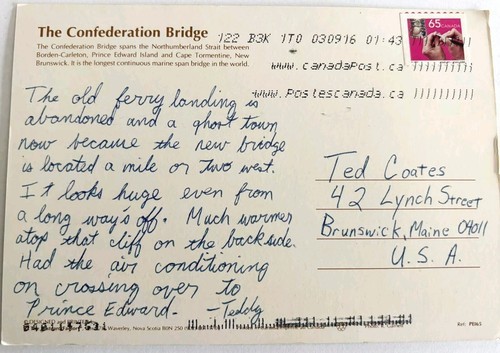 The Confederation Bridge
The Confederation Bridge spans the Northumberland Strait between
Borden-Carleton, Prince Edward Island and Cape Tormentine, New
Brunswick. It is the longest continuous marine span bridge in the world.
122 B3K 1T0 030916 01:43
www.canadaPost.ca
www.Postescanada.ca
65
CANADA
The old ferry landing is
abandoned and a ghost town
now because the new bridge
is located a mile or two west.
It looks huge even from
a long way's off. Much warmer
atop that cliff on the backside.
Had the air conditioning
on crossing over to
Prince Edward. -Teddy
Ted Coates
42 Lynch Street
Brunswick, Maine 04011
U.S.A.
Waverley, Nova Scotia B0N